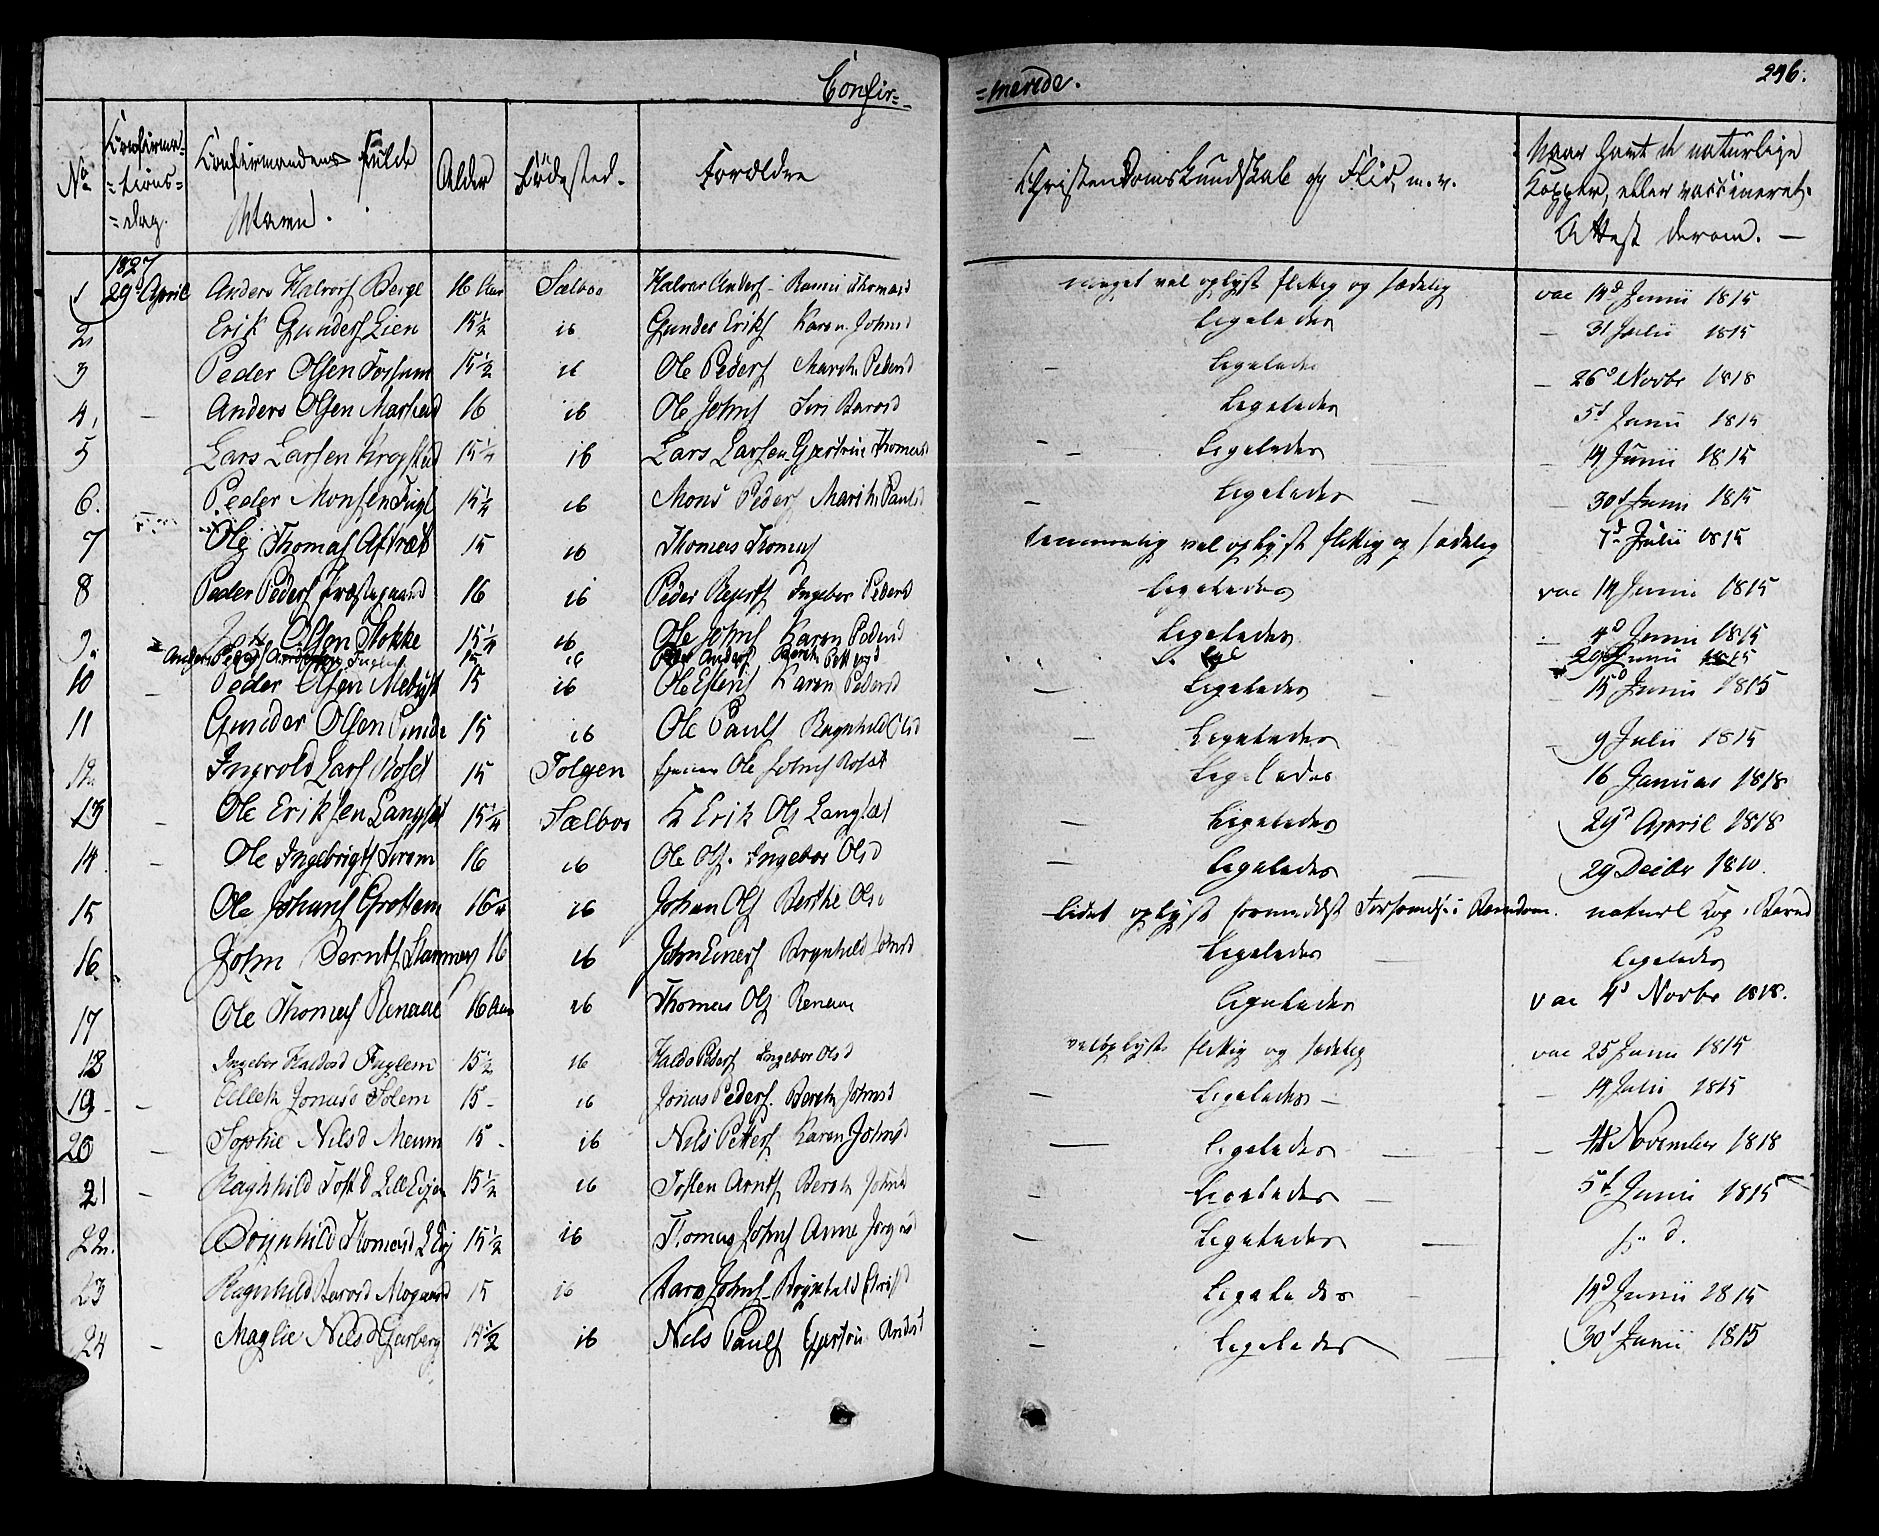 Confir= =merede. 296.
No Confirma= =tions= =dag. Confirmandens fulde Navn. Alder Fødested. Forældre Christendoms Kundskab og Flid, m. v. Naar havt de naturlige Kopper, eller vaccineret. Attest derom. —
1827
1 29d April Anders Halvors Berge 16 Aar Sælboe Halvor Anders - Thomasd meget vel oplyst flittig og sædelig vac 14d Junii 1815
2 Erik Gunders Lien 15 1/2 ib Gunder Eriks Karen Johnsd Ligeledes — 31 Julii 1815
3 Peder Olsen Fossum 15 1/2 ib Ole Peders Marith Pedersd — Ligeledes — 26d Novbr 1818
4, — Anders Olsen 16 ib Ole Johns Siri Baarsd Ligeledes 5d Junii 1815
5 Lars Larsen Krogstad 15 1/4 ib Lars Larsen Gjertrue Thomasd — Ligeledes — 14 Junii 1815
6. Peder Monsen Fugl 15 1/4 ib Mons Peders Marith Paulsd — Ligeledes — 30d Junii 1815
7 Ole Thomas Aftret 15 ib Thomas Thomas temmelig vel oplyst flittig og sædelig 7d Julii 1815
8 Peder Peders Præstegaard 16 ib Peder Ingebor Pedersd Ligeledes vac 14 Junii 1815
9. Olsen Stokke 15 1/4 ib Ole Johns Karen Pedersd Ligeledes 4d Junii 1815
Anders Peders ib Peder Anders Junii 1815
10 — Peder Olsen Mebust 15 ib Ole Karen Pedersd — Ligeledes — 15d Junii 1815
11 Gunder Olsen 15 ib Ole Pauls Ragnhild Olsd — Ligeledes — 9 Julii 1815
12. Ingvold Lars Roset 15 Tolgen Ole Johns Roset Ligeledes 16 Januar 1818
13 — Ole Eriksen Langset 15 1/4 Sælboe Erik Ols Langset — Ligeledes 29d April 1818
14 — Ole Ingebrigts 16 ib Ole Ols. Ingebor Olsd — Ligeledes — 29 Decbr 1810.
15 Ole Johans Grottem 16 1/4 ib Johan Ols Berthe Olsd lidet oplyst formedelst Forsømmelse i Barndom. naturl Kop i Barnd
16. John Bernts 16 ib John Ragnhild Johnsd Ligeledes — Ligeledes
17 Ole Thomas Renaae 16 Aar ib Thomas Ols Renaae Ligeledes vac 4d Novbr 1818.
18 Ingebor Haldosd Fuglem 15 1/2 ib Haldo Peders Ingebor Olsd veloplyst flittig og sædelig vac 25 Junii 1815
19 — Jonasd Solem 15 - ib Jonas Peders. Bereth Johnsd — Ligeledes — — 14 Julii 1815
20 — Sophie Nilsd Meum 15 - ib Nils Petters Karen Johnsd — Ligeledes — — November 1818
21 — Ragnhild Lille Evjen 15 1/2 ib Tosten Arnts Bereth Johnsd — Ligeledes — 5d Junii 1815
22. Ragnhild Thomasd L Evj 15 1/2 ib Thomas Johns Anne Jørgensd — Ligeledes — d.
23 Ragnhild Baarsd Mogaard 15 ib Baar Johns Ragnhild Ligeledes — 14d Junii 1815
24 — Maglie Nilsd Garberg 14 1/2 ib Nils Pauls Gjertru Andersd — Ligeledes — 30d Junii 1815